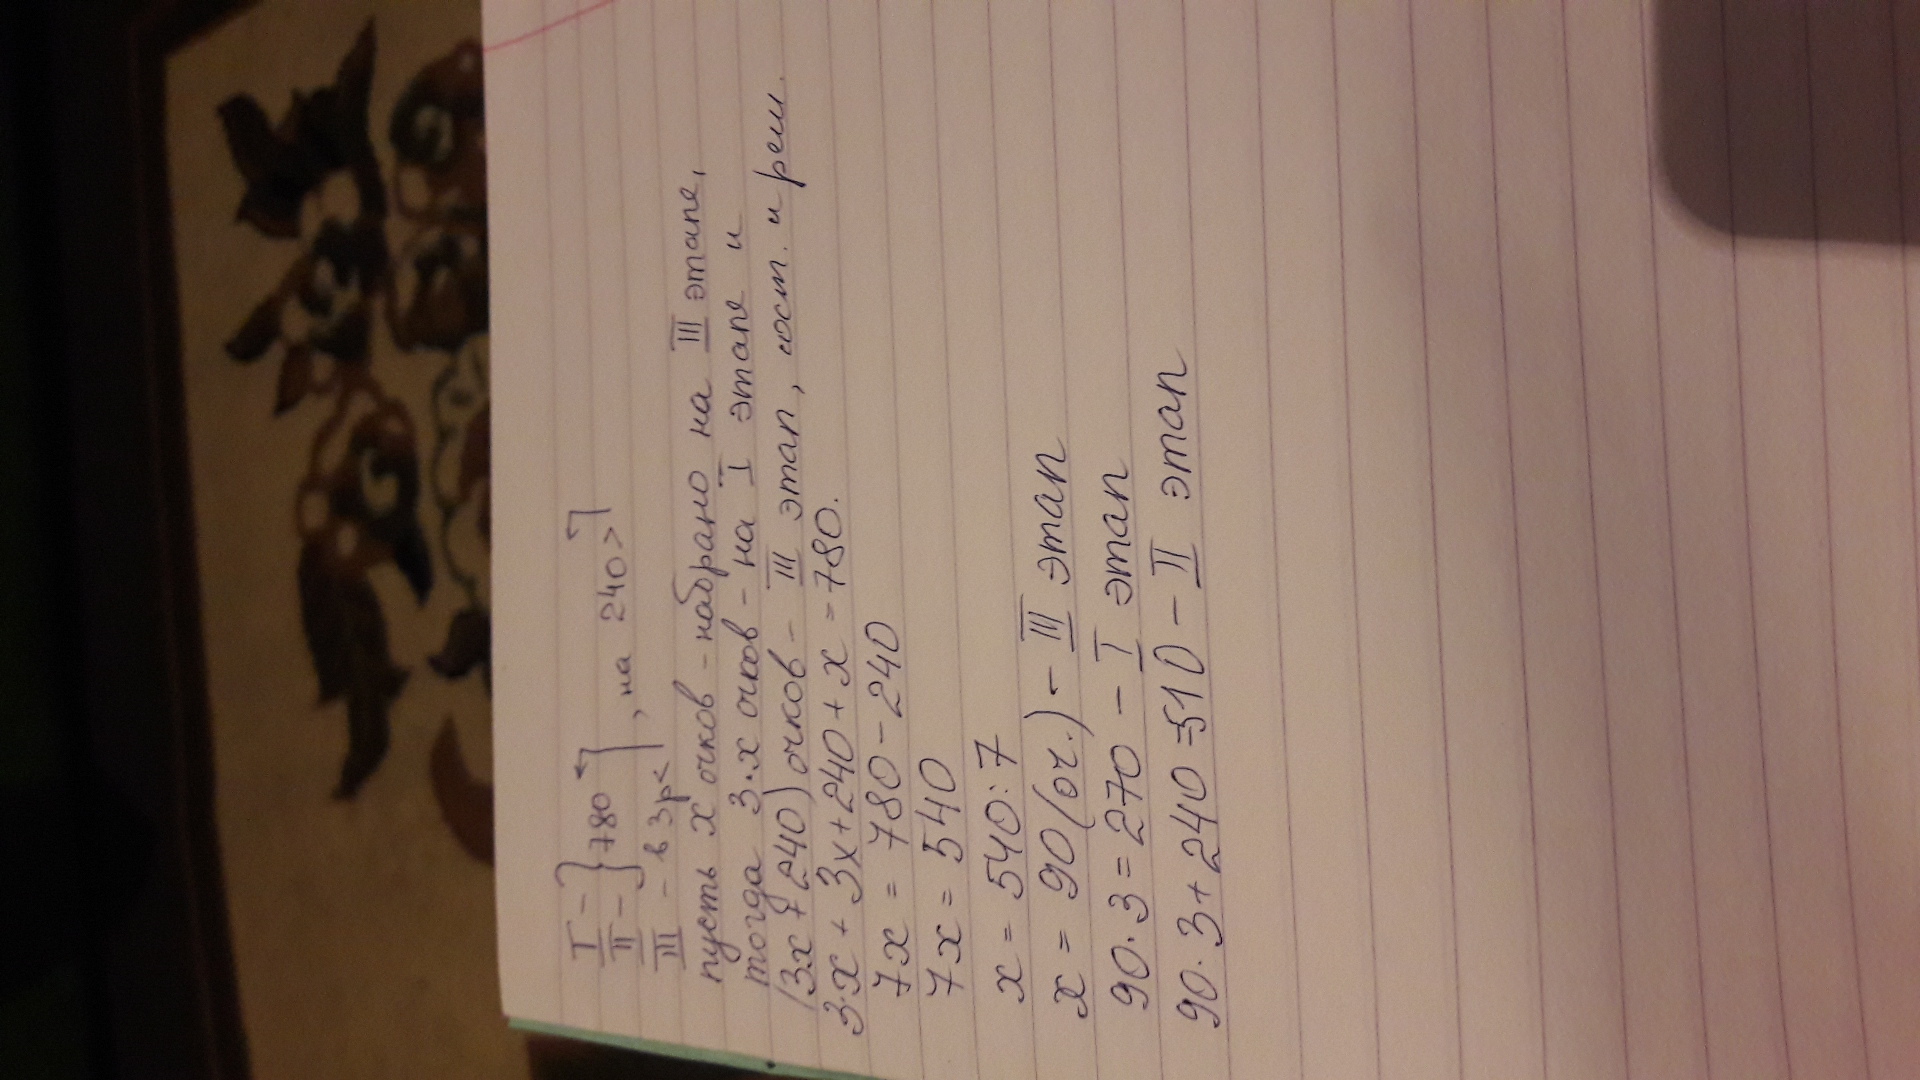 I -
II - } 780
III - в 3р <, на 240 >
пусть x очков - набрано на III этапе,
тогда 3·x очков - на I этапе и
(3x+240) очков - III этап, сост. и реш.
3·x + 3x+240+x = 780.
7x = 780-240
7x = 540
x = 540:7
x = 90 (оч.) - III этап
90·3=270 - I этап
90·3+240=510 - II этап